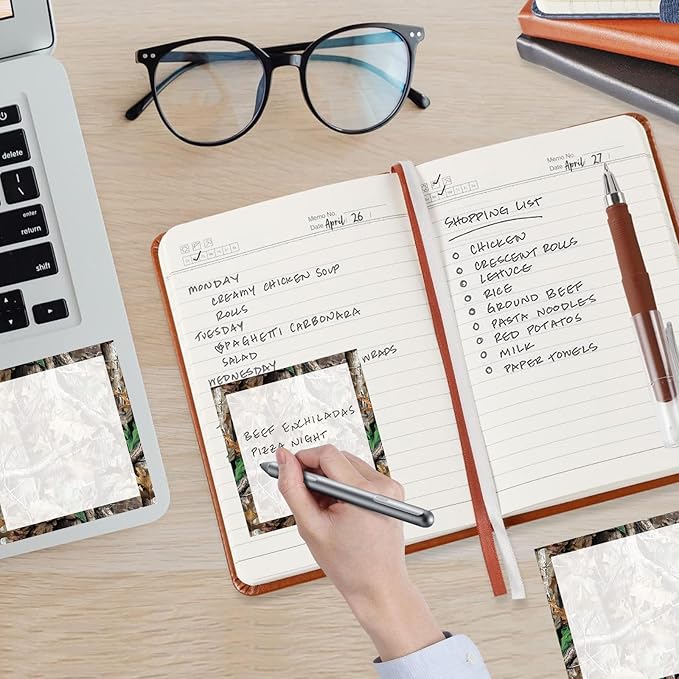 delete
enter
return
shift
Memo No.
Date April 26
MONDAY
CREAMY CHICKEN SOUP
ROLLS
TUESDAY
SPAGHETTI CARBONARA
SALAD
WEDNESDAY
WRAPS
BEEF ENCHILADAS
PIZZA NIGHT
Memo No.
Date April 27
SHOPPING LIST
CHICKEN
CRESCENT ROLLS
LETTUCE
RICE
GROUND BEEF
PASTA NOODLES
RED POTATOS
MILK
PAPER TOWELS